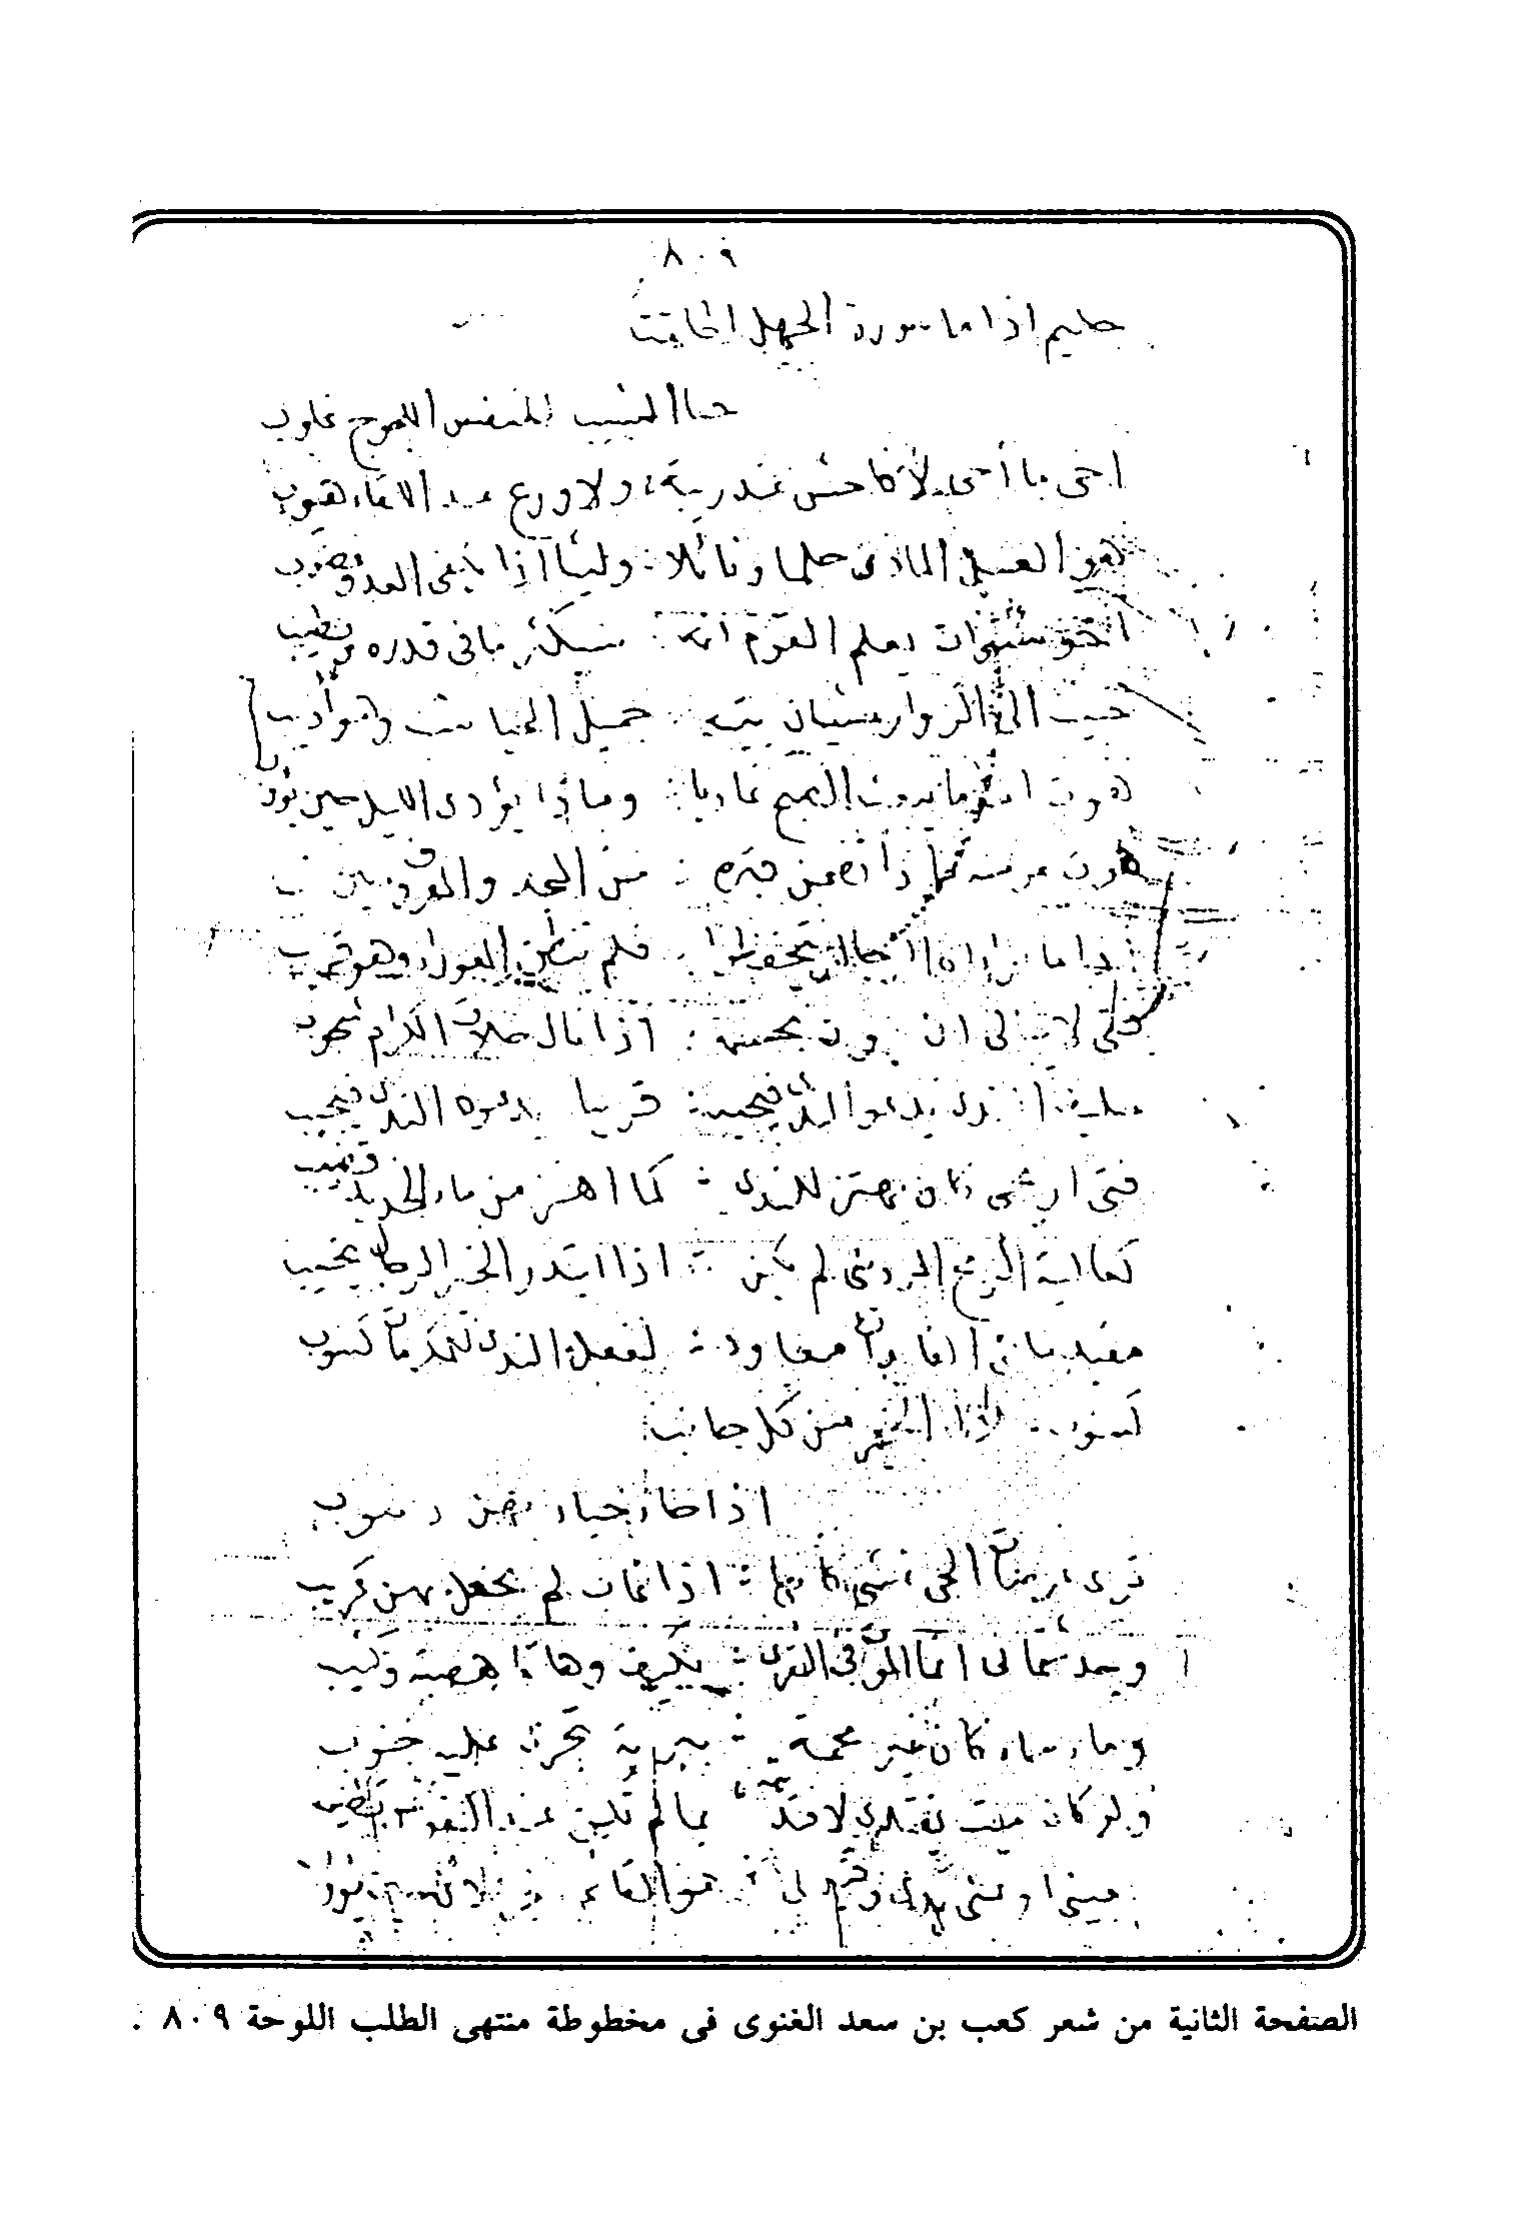 ٨٠٩
حليم اذا ما سورة الجهل اطلقت
حبا الشيب للنفس اللجوج غلوب
اخى ما أخى لا فاحش عند ريبة ولا ورع عند اللقاء هيوب
هو العسل الماذى حلما ونائلا وليث اذا يلقى العدو غضوب
اخو شتوات يعلم القوم انه سيكثر ما فى قدره ويطيب
حبيب الى الزوار غشيان بيته جميل المحيا شب وهو أديب
هوت امه ما يبعث الصبح غاديا وماذا يؤدى الليل حين يؤوب
هوت عرسه ماذا تضمن قبره من المجد والمعروف حين
اذا ما تراآه الرجال تحفظوا فلم تنطق العوراء وهو قريب
فتى لا يبالى ان يكون بجسمه اذا نال خلات الكرام شحوب
حليف الندى يدعو الندى فيجيبه قريبا ويدعوه الندى فيجيب
فتى اريحى كان يهتز للندى كما اهتز من ماء الحديد قضيب
كعالية الرمح الردينى لم يكن اذا ابتدر الخير الرجال يخيب
مفيد ملقى الفائدات معاود لفعل الندى للمكرمات كسوب
كسوب خلال الخير من كل جانب
اذا جاء جياء بهن ذهوب
ترى عرصات الحى تمسى كانها اذا غاب لم يحلل بهن عريب
وحدثتمانى انما الموت فى القرى فكيف وهاتا هضبة وكثيب
وماء سماء كان غير محمة ببرية تجرى عليه جنوب
ولو كان ميت يفتدى لافتديته بما لم تكن عنه النفوس تطيب
بعينى او يمنى يدى وقيل لى هو الغانم الجذلان حين يؤوب
الصفحة الثانية من شعر كعب بن سعد الغنوى فى مخطوطة منتهى الطلب اللوحة ٨٠٩ .